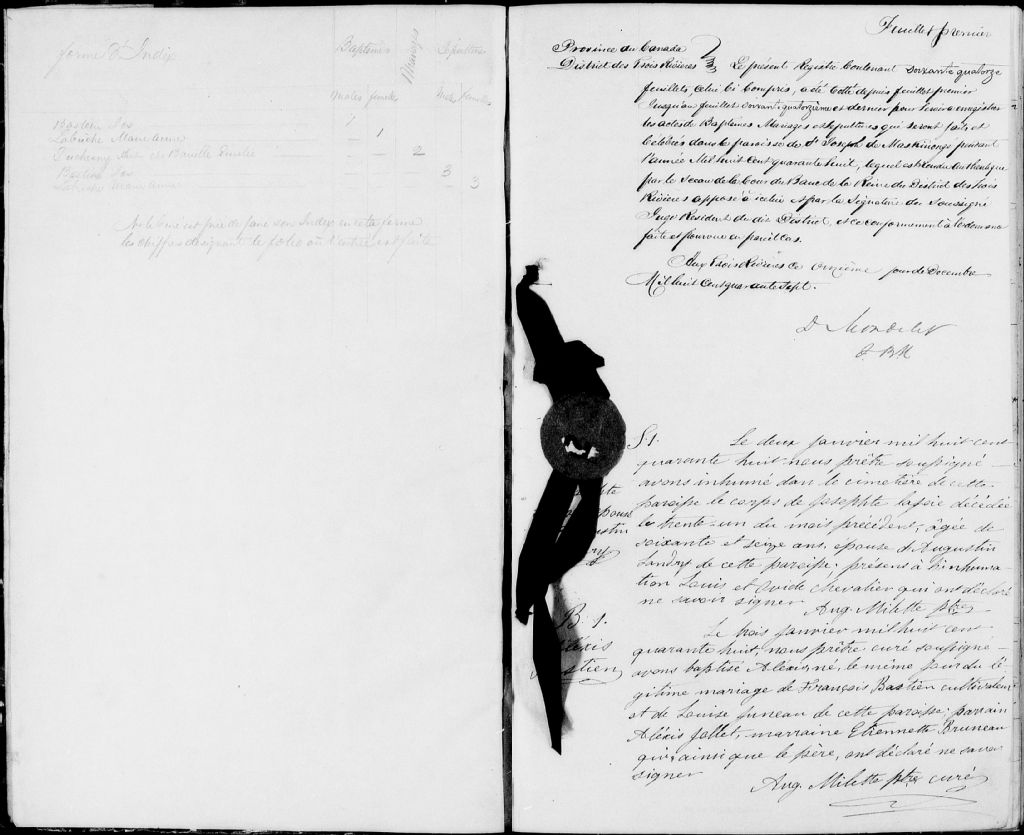 forme d'Index
Baptemes
Mariages
Sépultures
males femeles
Mal. femeles
Bastien Jos 1
Labiche Marie Anne — 1
Ducharny — 2
Bastien Jos 3
Labiche Marie Anne — 3
Mr le Curé est prié de faire son Index en cette forme
les chiffres désignant le folio où l'entrée est faite
Feuillet premier
Province du Canada
District des Trois Rivières
Le présent Registre Contenant soixante quatorze
feuillets celui ci Compris, a été Cotté depuis feuillet premier
Jusqu'au feuillet soixante quatorzième et dernier pour servir a enregistrer
les actes de Baptêmes Mariages et sépultures qui seront faits et
Célébrés dans la paroisse de St Joseph de Maskinongé pendant
l'année Mil huit Cent quarante huit, lequel est rendu authentique
par le Sceau de la Cour du Banc de la Reine du District des Trois
Rivières apposé à icelui et par la Signature du Soussigné
Juge Resident du dit District, et ce conformement à l'ordonnance
faite et pourvue en pareil Cas.
Aux Trois Rivières ce onzième jour de Decembre
Mil huit Cent quarante sept.
D Mondelet
J. B.R
S. 1.
Le deux janvier mil huit cent
quarante huit nous prêtre soussigné
avons inhumé dans le cimetière de cette
paroisse le corps de Josephte Lassie décédée
le trente-un du mois précédent, âgée de
soixante et seize ans, épouse d'Augustin
Landry de cette paroisse; présens à l'inhuma-
tion Louis et Ovide Chevalier qui ont déclaré
ne savoir signer
Aug. Milette ptre
B. 1.
Aléxis
Bastien
Le trois janvier mil huit cent
quarante huit, nous prêtre curé soussigné
avons baptisé Aléxis, né le même jour du lé-
gitime mariage de François Bastien cultivateur
et de Louise Juneau de cette paroisse: parrain
Aléxis Jollet, marraine Etiennette Bruneau
qui, ainsi que le père, ont déclaré ne savoir
signer
Aug. Milette ptre curé